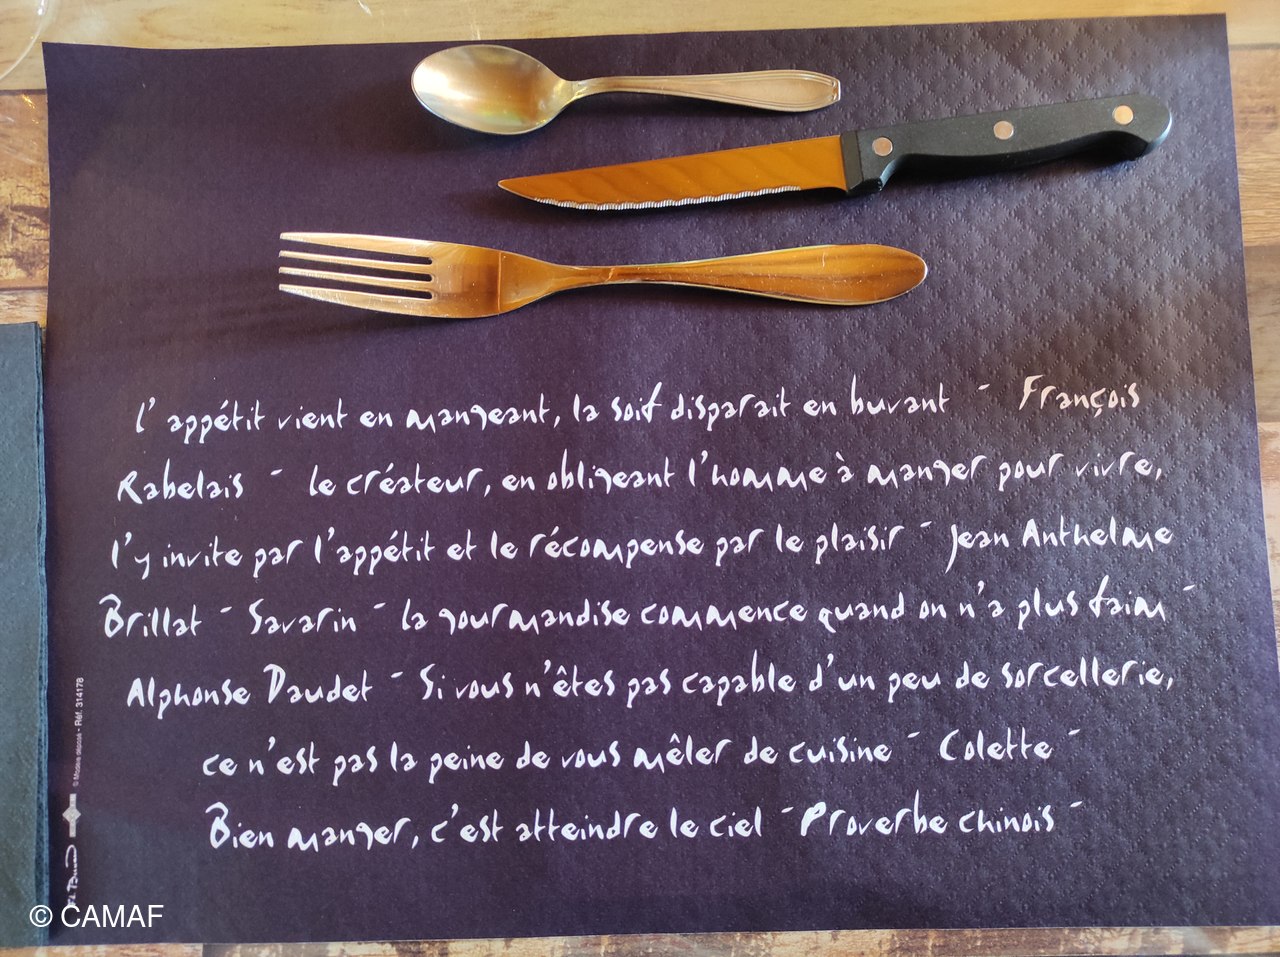 l'appétit vient en mangeant, la soif disparait en buvant - François
Rabelais - le créateur, en obligeant l'homme à manger pour vivre,
l'y invite par l'appétit et le récompense par le plaisir - Jean Anthelme
Brillat - Savarin - la gourmandise commence quand on n'a plus faim -
Alphonse Daudet - Si vous n'êtes pas capable d'un peu de sorcellerie,
ce n'est pas la peine de vous mêler de cuisine - Colette -
Bien manger, c'est atteindre le ciel - Proverbe chinois -
© Modèle déposé - Réf. 314178
© CAMAF